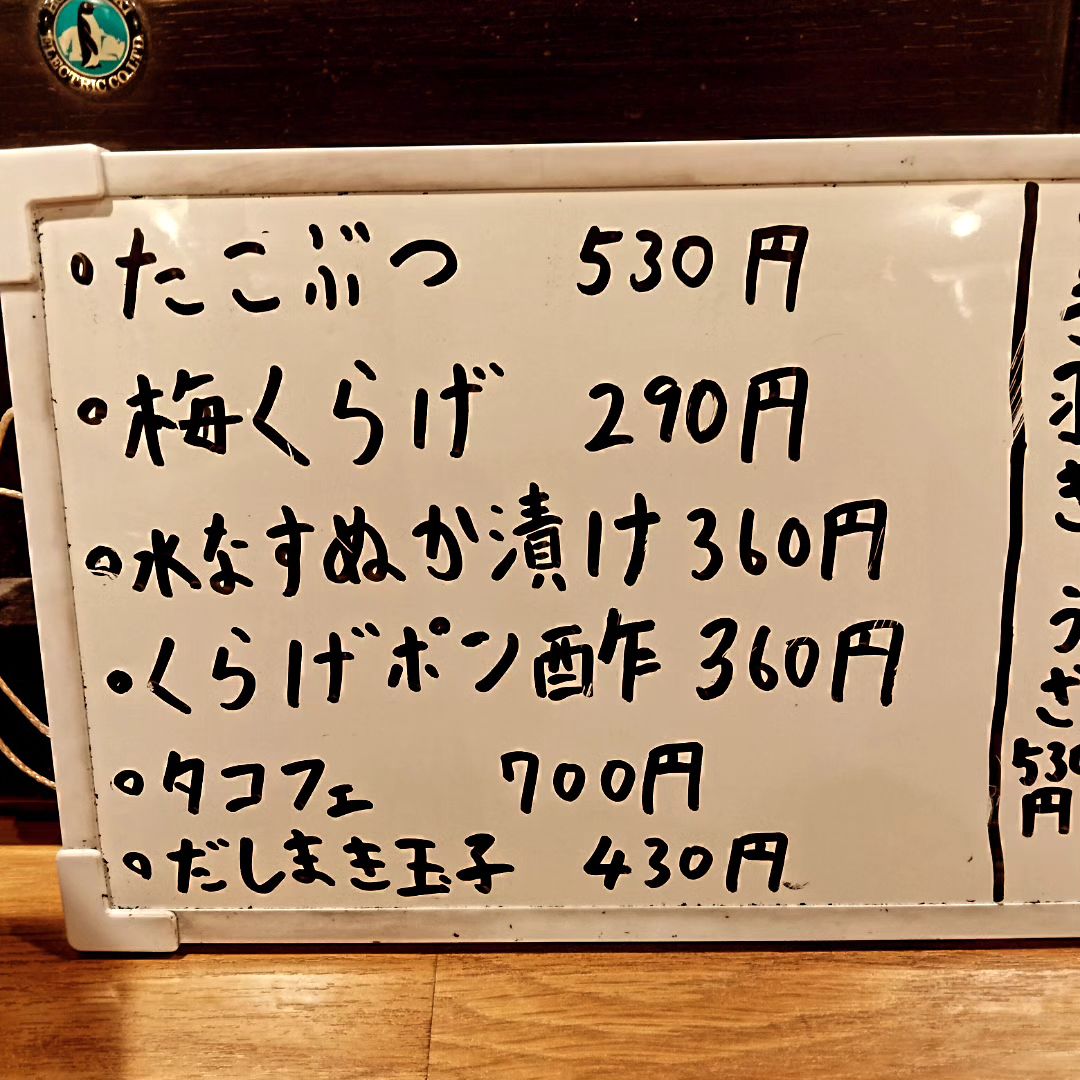 ELECTRIC CO.LTD
・たこぶつ 530円
・梅くらげ 290円
・水なすぬか漬け 360円
・くらげポン酢 360円
・タコフェ 700円
・だしまき玉子 430円
うざ
530
円